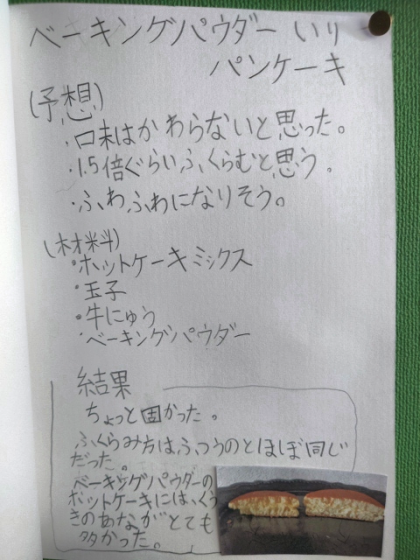 ベーキングパウダーいり
パンケーキ
(予想)
・口味はかわらないと思った。
・1.5倍ぐらいふくらむと思う。
・ふわふわになりそう。
(材料)
・ホットケーキミックス
・玉子
・牛にゅう
・ベーキングパウダー
結果
ちょっと固かった。
ふくらみ方は、ふつうのとほぼ同じ
だった。
ベーキングパウダーの
ホットケーキには、くう
きのあながとても
多かった。